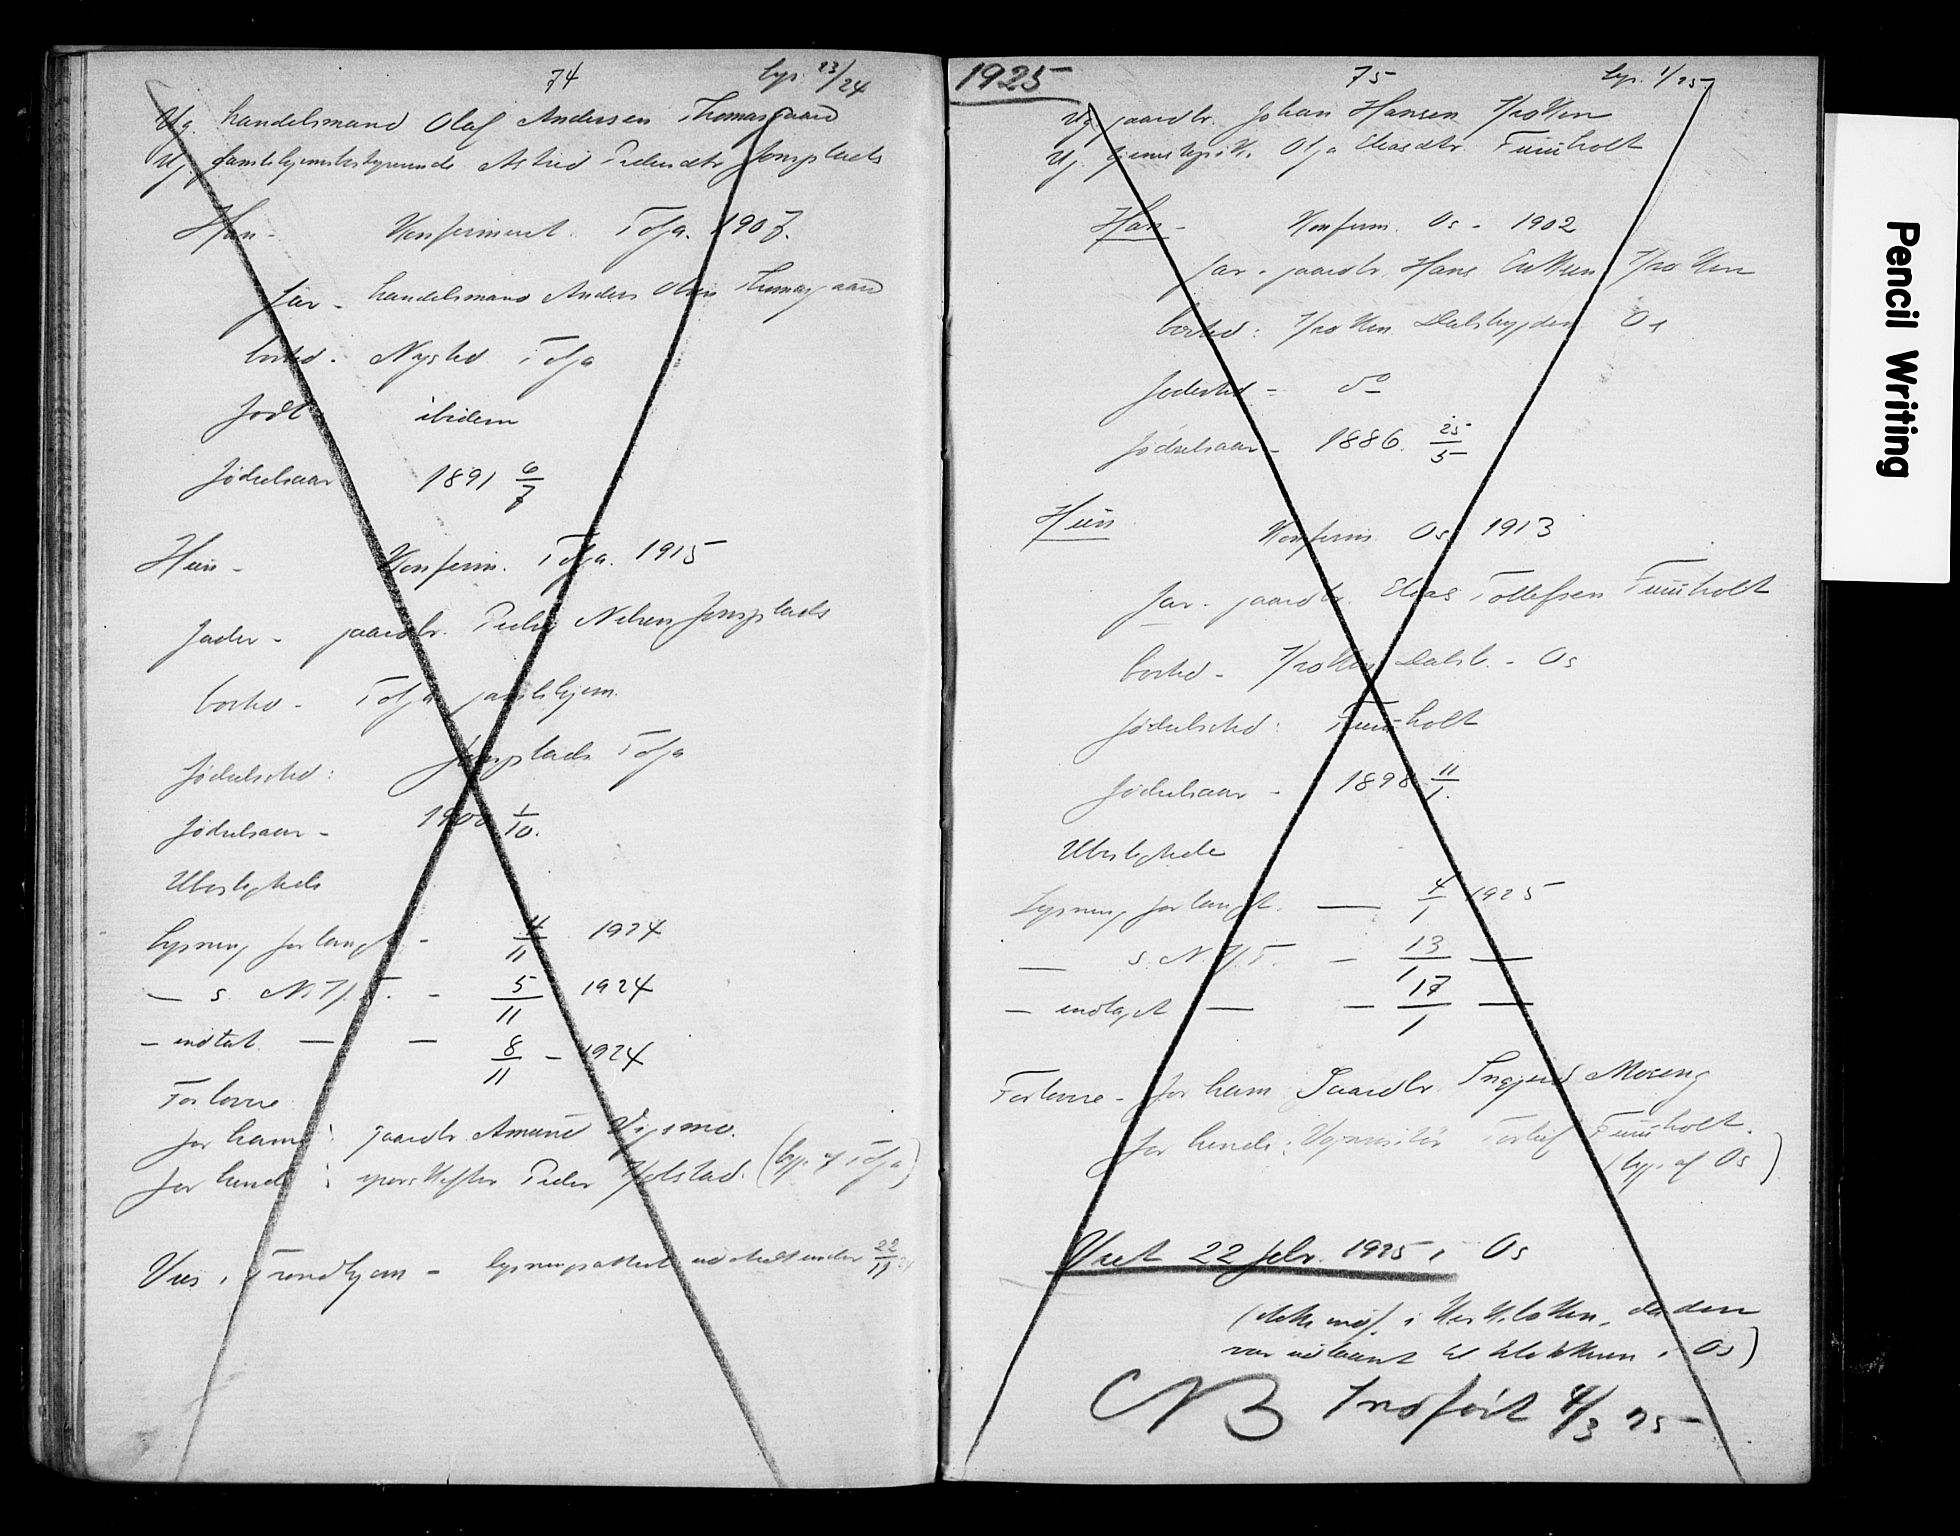 74 lys. 23/24
Ug. handelsmand Olaf Andersen Thomasgaard
Ug. gamlehjemsbestyrerinde Astrid Pedersdtr Jonsplads
Han - Konfirmeret. Tolga. 1907.
far - handelsmand Anders Olsen Thomasgaard
bosted. Nysted Tolga
født ibidem
fødselsaar 1891 6/7
Hun - Konfirm. Tolga. 1915
fader - gaardbr. Peder Nilsen Jonsplads
bosted - Tolga gamlehjem.
fødselssted: Jonsplads Tolga
fødselsaar - 1900 1/10.
Ubeslægtede
Lysning forlangt - 4/11 1924
— s. N. T. - 5/11 1924
- indtat — — 8/11 - 1924
Forlovere
for ham: gaardbr. Amund Vigsmo.
for hende: Peder (lys. af Tolga)
Vies i Trondhjem - lysningsattest utstedt under 22/11 24
1925
75 lys. 1/25
Ug. gaardbr. Johan Hansen
Ug. Olga Eliasdtr. Fuuholt
Han - Konfirm. Os - 1902
far - gaardbr. Hans
bosted: Dalsbygden Os
fødested - do
fødselsaar - 1886. 25/5
Hun Konfirm. Os 1913
far - gaardbr. Elias Tollefsen Fuuholt
bosted - Dalsb. - Os
fødselssted: Fuuholt
fødselsaar - 1898 11/1.
Ubeslægtede
Lysning forlangt. — 4/1 1925
— s. N. T. - 13/1 —
- indtaget — - 17/1 —
Forlovere - for ham Gaardbr. Moseng
for hende: Fuuholt.
(lys. af Os)
Viet 22 febr. 1925 i Os
(dette i Kirkeboken, da den
var utlaant til klokkeren i Os)
NB Indført 4/3 25
Pencil Writing